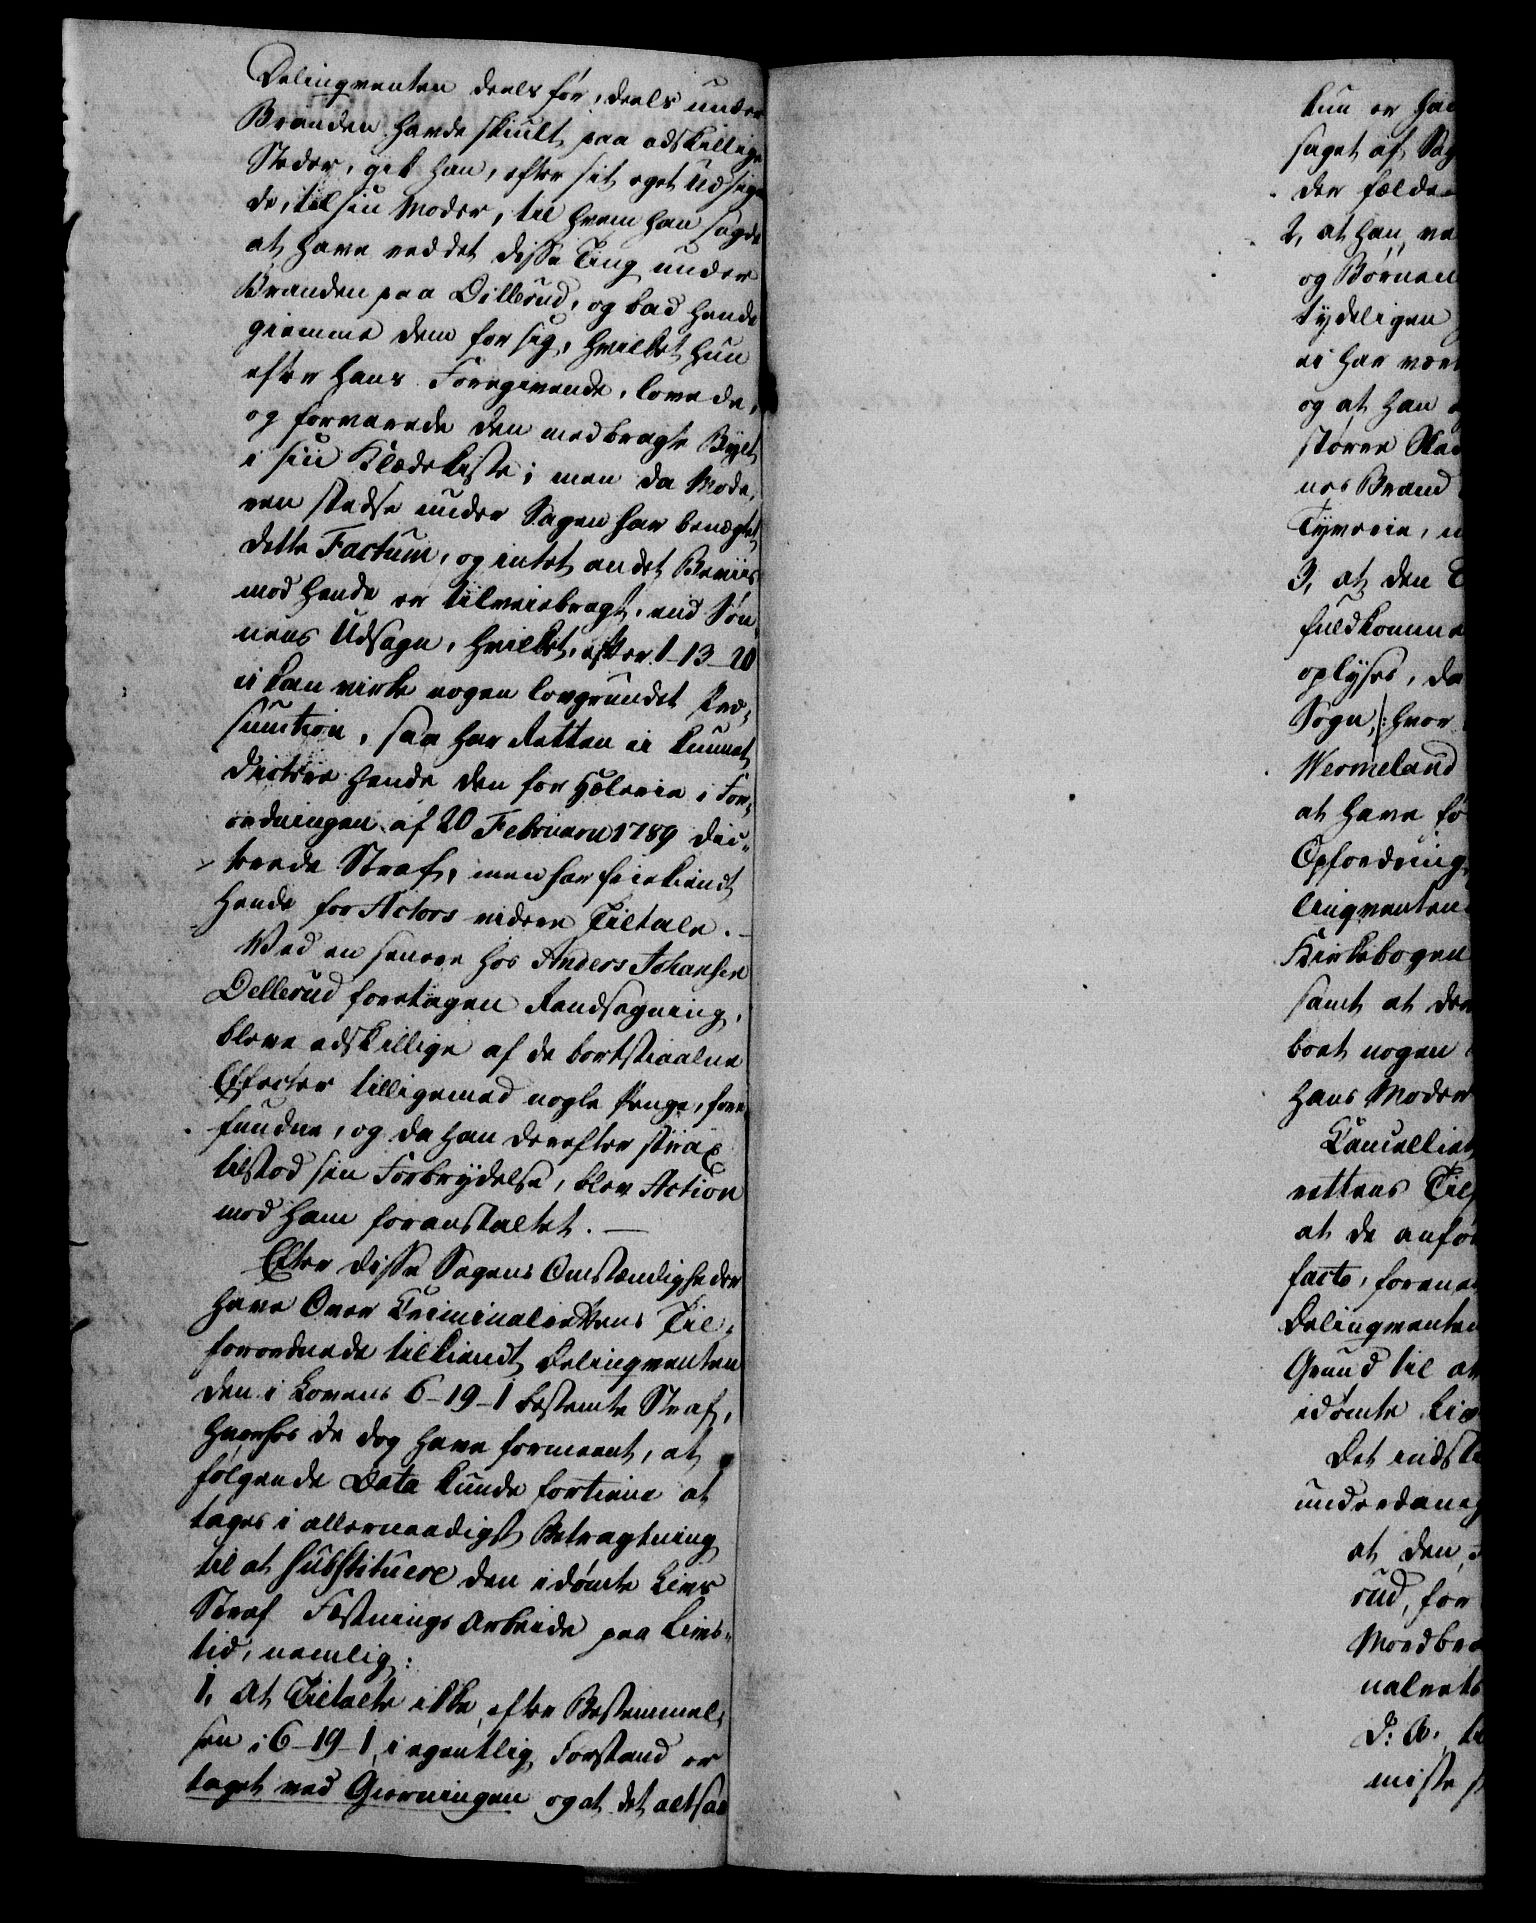 Delinqventen deels før, deels under
Branden havde skiult paa adskillige
Steder, gik han, efter sit eget Udsigen-
de, til sin Moder, til hvem han sagde
at have reddet disse Ting under
Branden paa Dillerud, og bad hende
giemme dem for sig, hvilket hun
efter hans Foregivende, lovede,
og forvarede den medbragte Bylt
i sin Klædekiste; men da Mode-
ren stedse under Sagen har benægtet
dette Factum, og intet andet Beviis
mod hende er tilveiebragt, end Søn-
nens Udsagn, hvilket, efter 1-13-20
ei kan virke nogen lovgrundet Præ-
sumtion, saa har Retten ei kunnet
dictere hende den for Hæleri i For-
ordningen af 20 Februarii 1789 dic-
terede Straf, men har frikiendt
hende for Actors videre Tiltale. -
Ved en senere hos Anders Johansen
Dellerud foretagen Randsagning,
bleve adskillige af de bortstiaalne
Effecter tilligemed nogle Penge, fore-
fundne, og da han derefter strax
tilstod sin Forbrydelse, blev Action
mod ham foranstaltet. -
Efter disse Sagens Omstændigheder
have Over Criminalrettens Til-
forordnede tilkiendt Delinqventen
den i Lovens 6-19-1 bestemte Straf,
hvorhos de dog have formeent, at
følgende Data kunde fortiene at
tages i allernaadigst Betragtning
til at substituere den idømte Livs
Straf Fæstnings Arbeide paa Livs-
tid, nemlig:
1, At Tiltalte ikke, efter Bestemmel-
sen i 6-19-1, i egentlig Forstand er
taget ved Gierningen og at det altsaa
kun er
saget af
der fælde
2, at han, ve
og Børnen
tydeligen
ei har vær
og at han
større
nes Brand
Tyverie,
3, at den
fuldkomme
oplyses, da
Sogn, |: hvor
Wermeland
at have fø
Opfordring
linqventen
Kirkebogen
samt at der
boet nogen
hans Moder
Cancelliet
rettens Til
at de anfør
facto, forene
Delinqventen
Grund til at
idømte Liv
Det indst
underdanig
at den
rud, for
Mordbra
nalrets
D: A:
miste